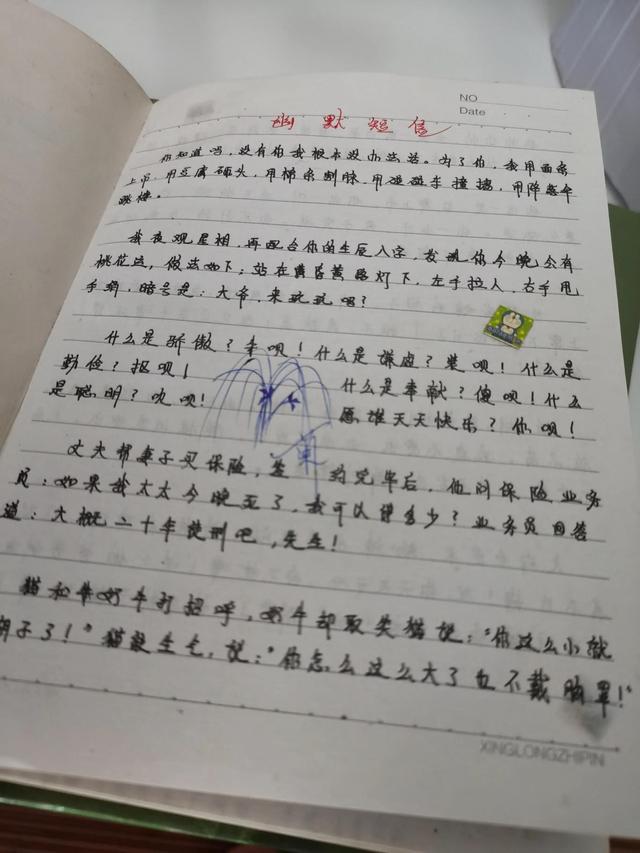 NO
Date
幽默短信
你知道吗,没有你我根本没办法活。为了你,我用面条
上吊,用豆腐砸头,用棉条割脉,用碰碰车撞墙,用降落伞
跳楼。
我夜观星相,再配合你的生辰八字,发现你今晚会有
桃花运,做法如下:站在黄昏黄路灯下,左手拉人,右手甩
手绢,暗号是:大爷,来玩玩吗?
什么是骄傲?牛呗!什么是谦虚?装呗!什么是
勤俭?抠呗!什么是奉献?傻呗!什么
是聪明?吹呗!愿谁天天快乐?你呗!
丈夫帮妻子买保险,签单约完毕后,他问保险业务
员:如果我太太今晚死了,我可以得多少?业务员回答
道:大概二十年徒刑吧,先生!
猫和牛奶牛打招呼,奶牛却取笑猫说:“你这么小就
胡子了!”猫很生气,说:“你怎么这么大了也不戴胸罩!”
XINGLONGZHIPIN